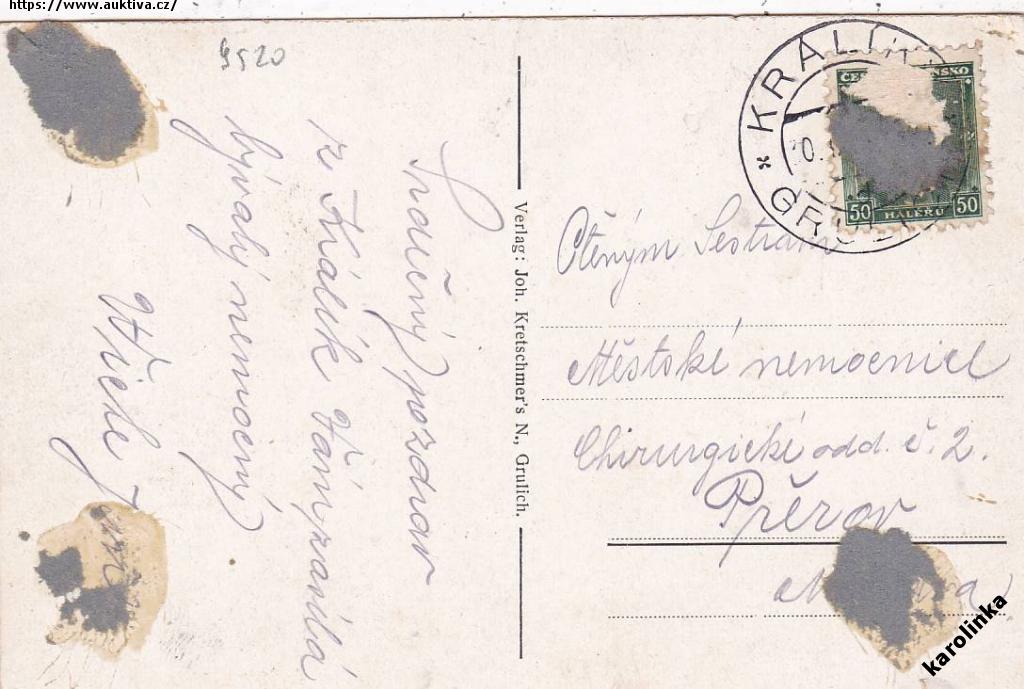 https://www.auktiva.cz/
9520
Srdečný pozdrav
z Králík Vám zasílá
bývalý nemocný
Verlag: Joh. Kretschmer's N., Grulich.
KRALÍ
GRUL
50 HALÉŘŮ 50
Ctěným Sestrám
Městské nemocnice
Chirurgické odd. č. 2.
Přerov
karolinka